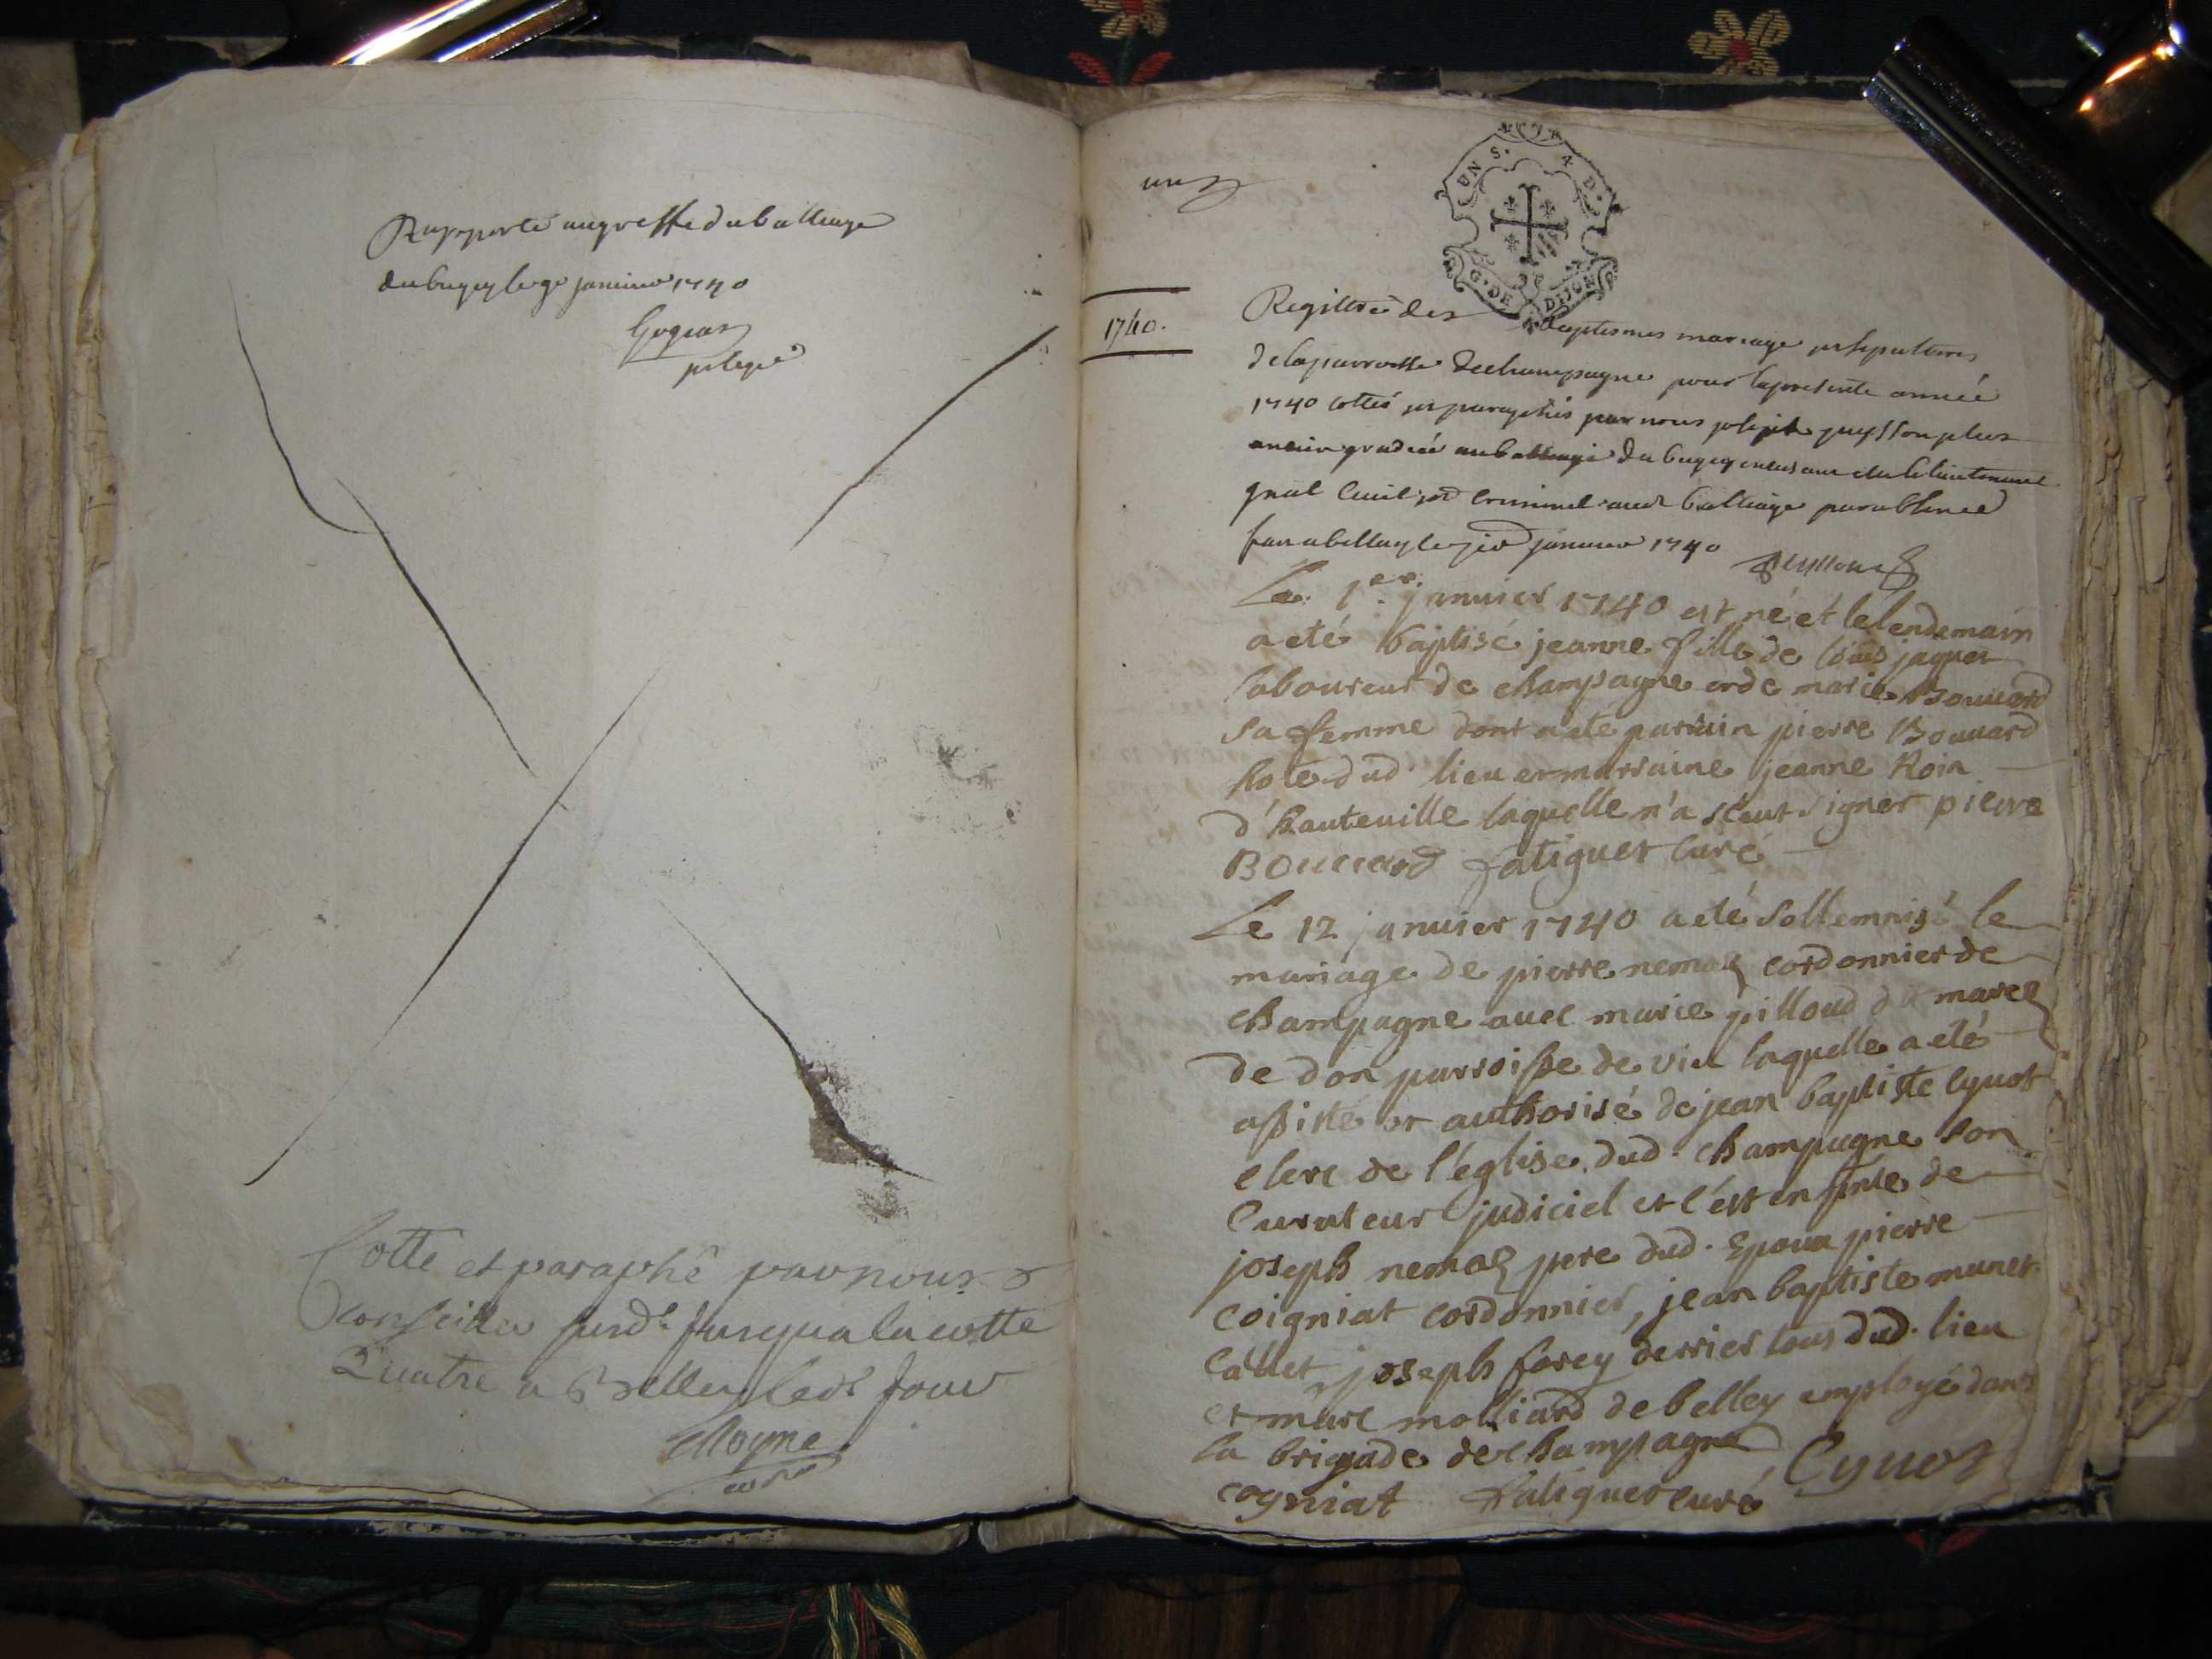 Rapporté au greffe du balliage
du bugey le 9e janvier 1740
Cotte et paraphé par nous
Conseiller jusqua la cotte
Quatre a Belley led. jour
un
UN S. 4 D.
G. DE DIJON
1740.
Registre des baptesmes mariage et sepultures
de la parroisse de champagne pour la presente année
1740 cotté et paraphés par nous plus
ancien gradué au balliage du bugey du lieutenant
gnal civil et criminel aud balliage par absence
fait a belley le janvier 1740
Le 1er janvier 1740 est né et le lendemain
a eté baptisé jeanne fille de louis jaquet
laboureur de champagne et de marie Bouvard
sa femme dont a eté parrain pierre Bouvard
hote dud. lieu et marraine jeanne Roin
d'hauteuille laquelle n'a sceut signer pierre
Bouvard fatiguet curé
Le 12 janvier 1740 a eté sollemnisé le
mariage de pierre nemoz cordonnier de
champagne avec marie pilloud dit marez
de don parroisse de vieu laquelle a eté
assisté et authorisé de jean baptiste cyuot
clerc de l'eglise dud. champagne son
curateur judiciel et c'est en pnce de
joseph nemoz pere dud. Epoux pierre
coigniat cordonnier, jean baptiste munet
callet joseph forey derrier tous dud. lieu
et marc molliard de belley employé dans
la brigade de champagne Cyuot
cogniat fatiguet curé